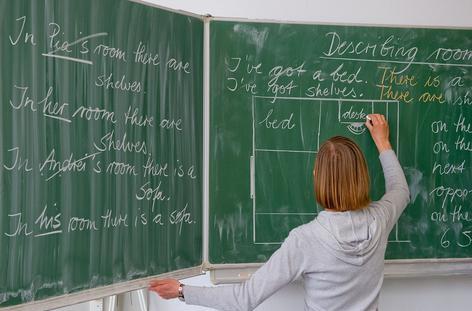 In Pia's room there are
shelves.
In her room there are
shelves.
In Andrei's room there is a
sofa.
In his room there is a sofa.
Describing room
I've got a bed. There is a
I've got shelves. There are
bed
desk
on th
on the
next
oppo
on the
6 S